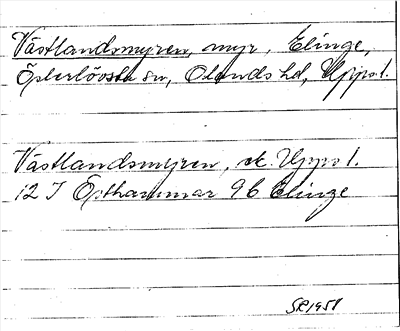 Västlandsmyren, myr, Elinge,
Österlövsta sn, Olands hd, Upps l.
Västlandsmyren, ek. Upps l.
12 I Östhammar 9b Elinge
SR 1951